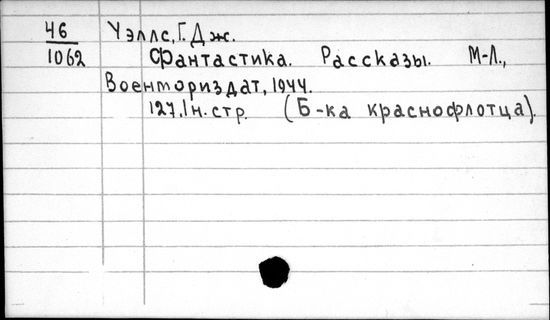 46 Уэллс, Г. Дж.
1062 Фантастика. Рассказы. М-Л.,
Военмориздат, 1944.
127, 1 н. стр. (Б-ка краснофлотца).